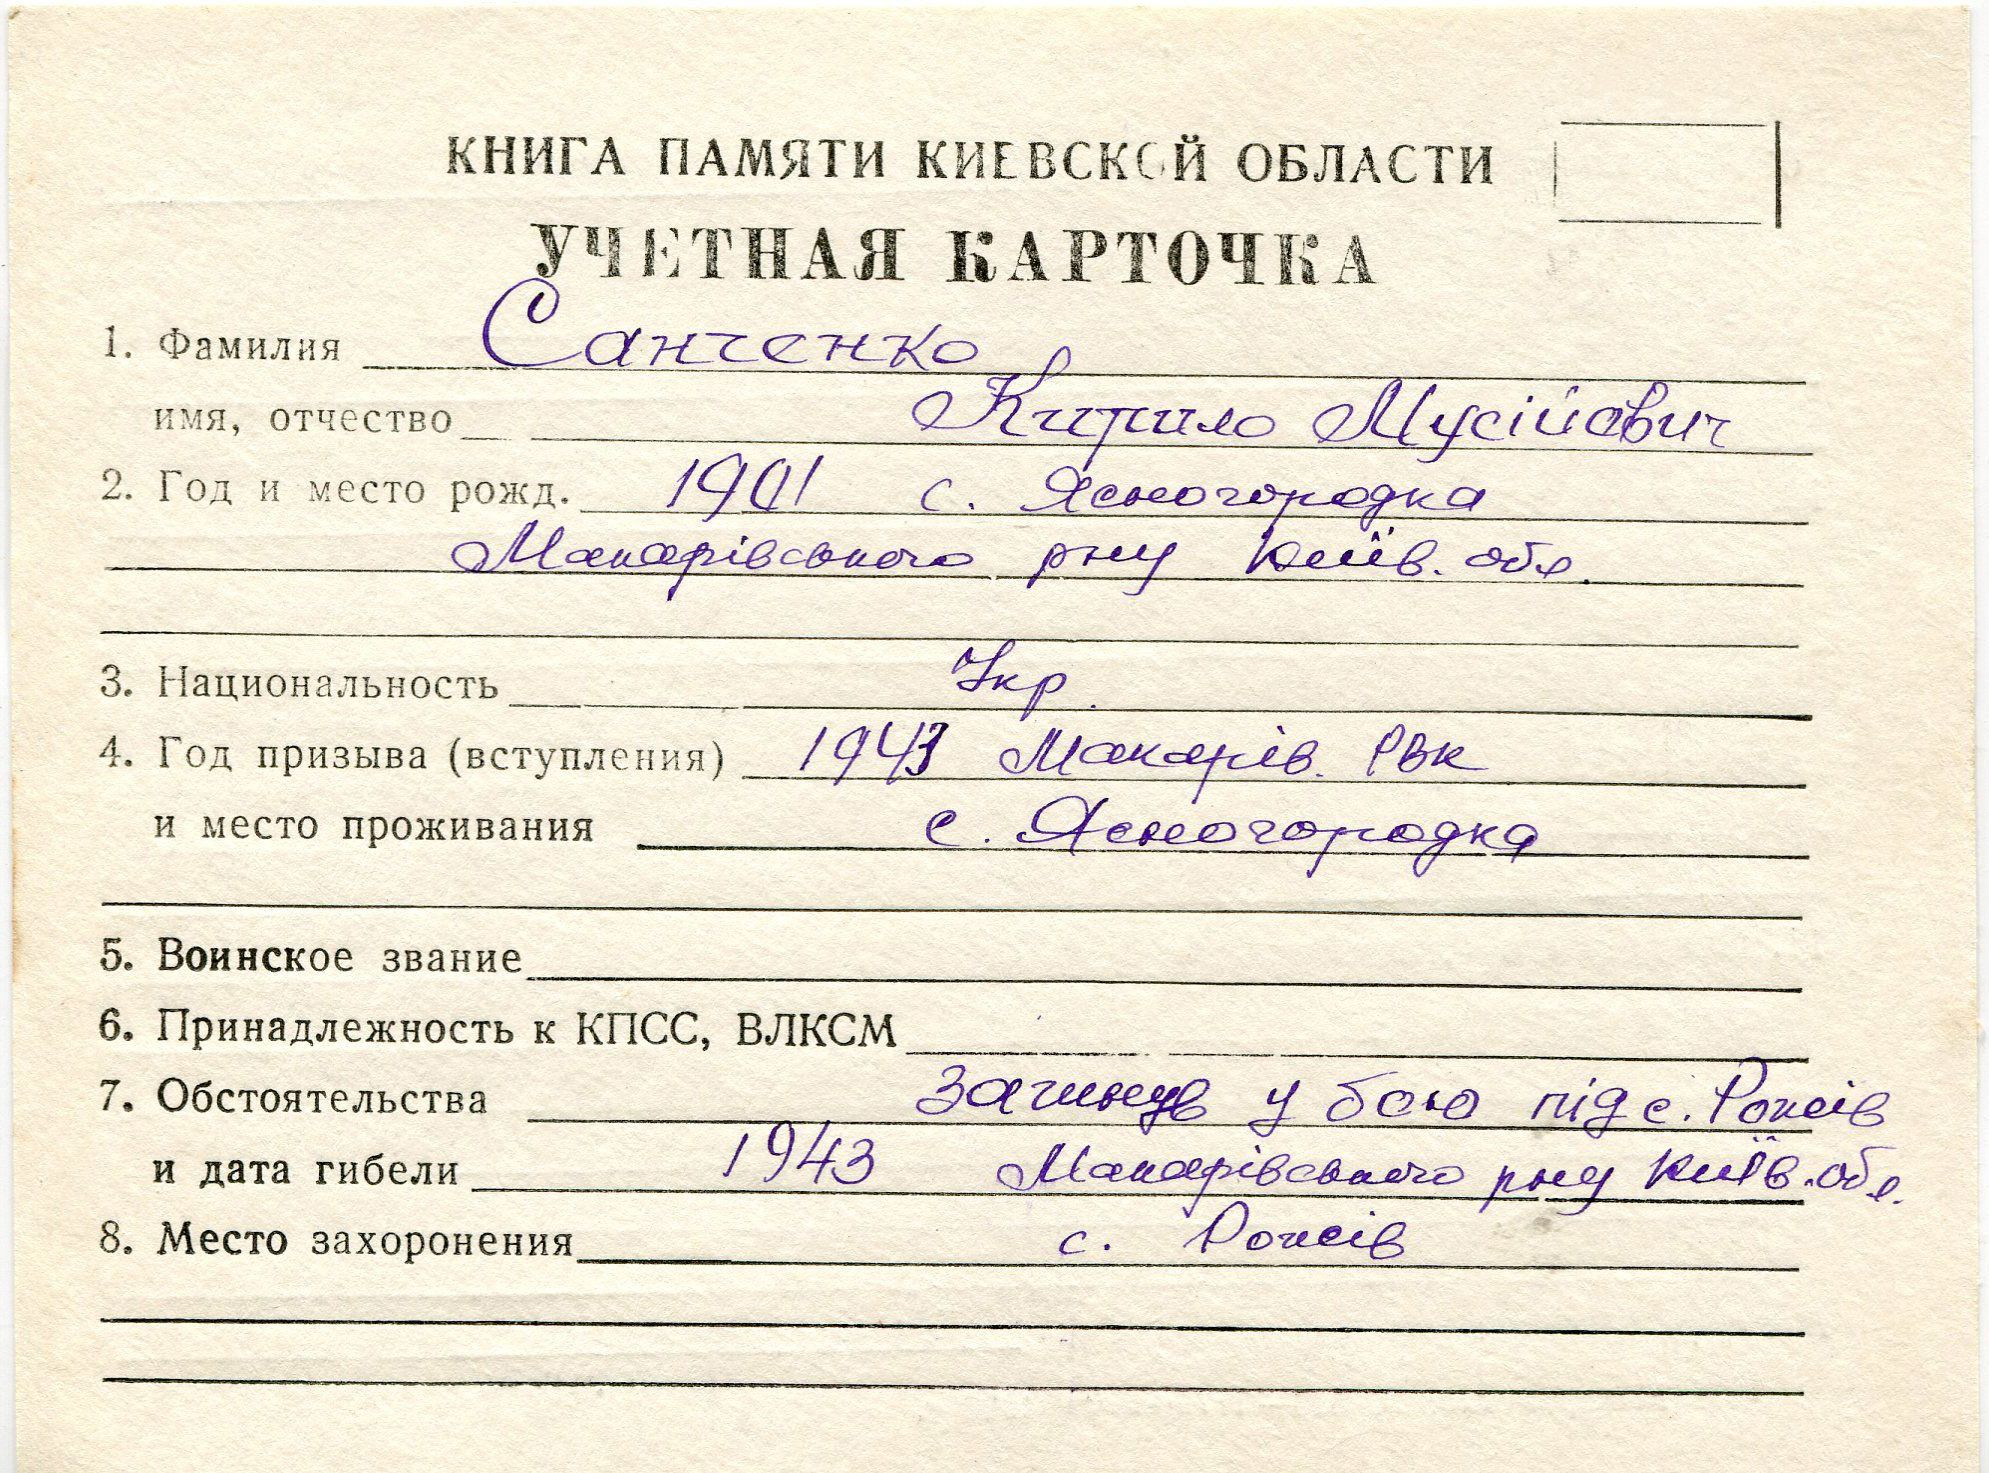 КНИГА ПАМЯТИ КИЕВСКОЙ ОБЛАСТИ
УЧЕТНАЯ КАРТОЧКА
1. Фамилия Санченко
имя, отчество Кирило Мусійович
2. Год и место рожд. 1901 с. Ясногородка
Макарівського рну Київ. обл.
3. Национальность Укр.
4. Год призыва (вступления) 1943 Макарів. РВК
и место проживания с. Ясногородка
5. Воинское звание
6. Принадлежность к КПСС, ВЛКСМ
7. Обстоятельства загинув у бою під с. Рожів
и дата гибели 1943 Макарівського рну Київ. обл.
8. Место захоронения с. Рожів